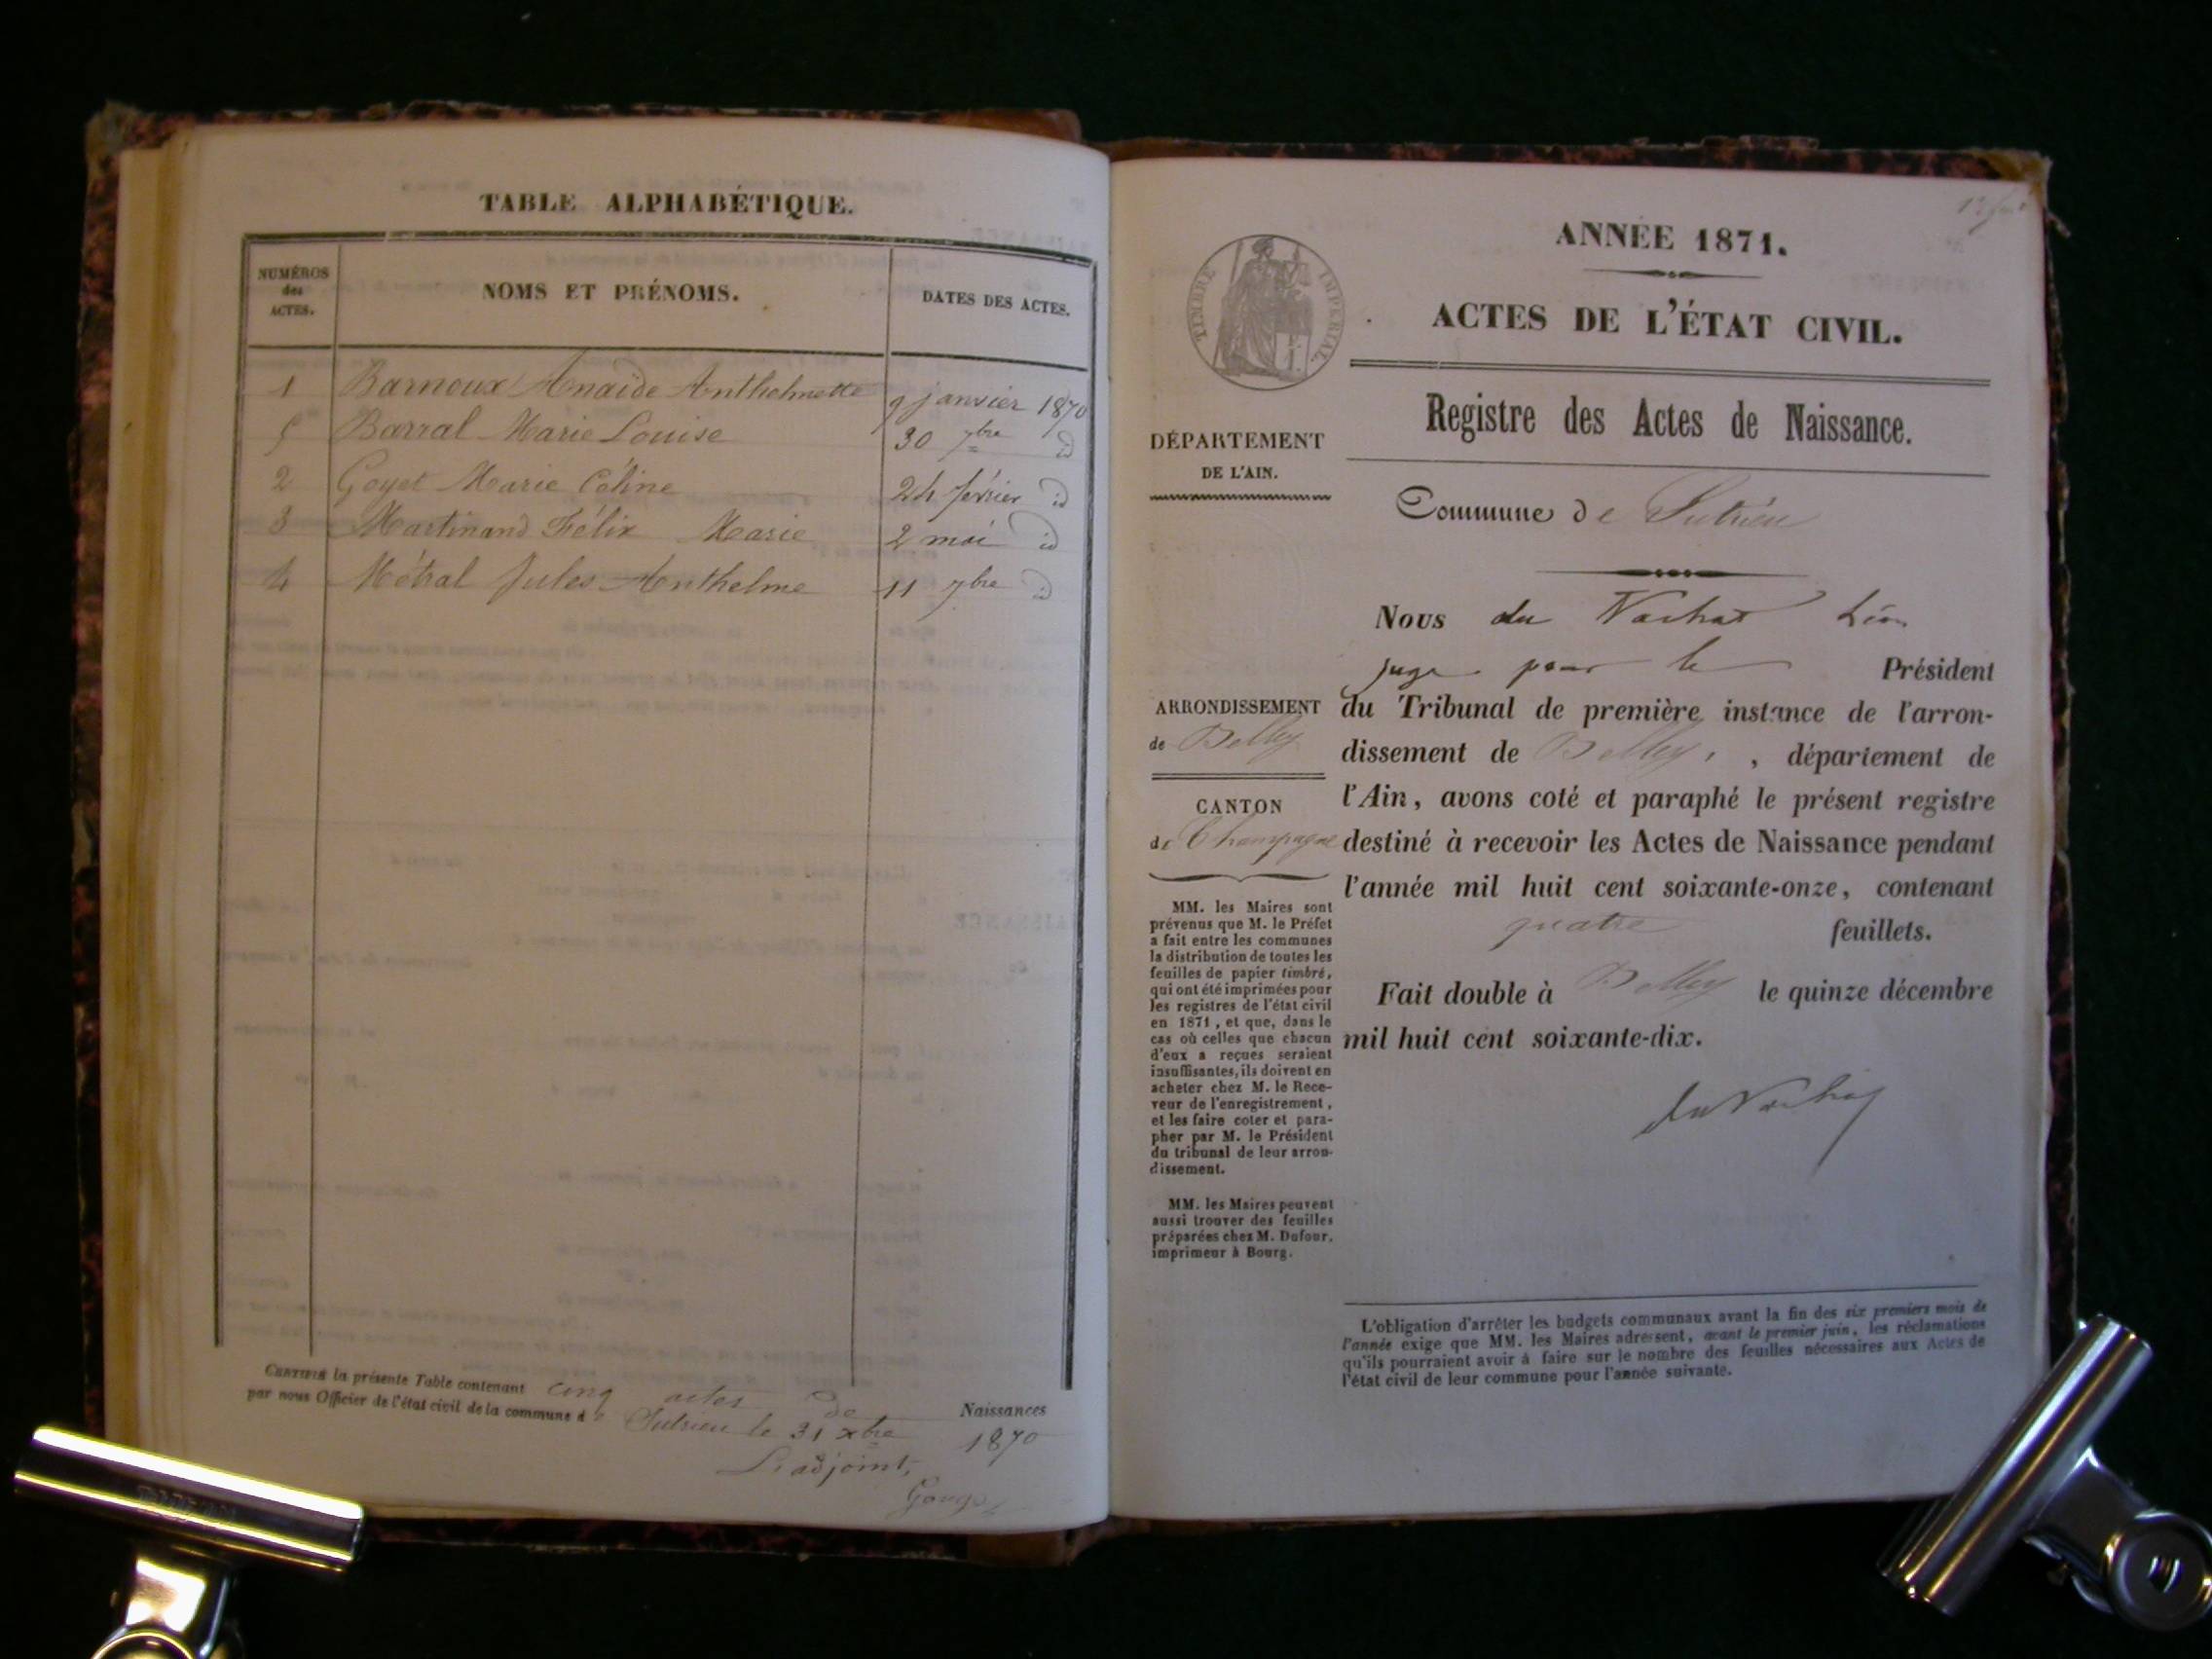 TABLE ALPHABÉTIQUE.
NUMÉROS
des
ACTES.
NOMS ET PRÉNOMS.
DATES DES ACTES.
1 Barnoux Anaïde Anthelmette 9 janvier 1870
5 Barral Marie Louise 30 7bre id
2 Goyet Marie Céline 24 février id
3 Martinand Félix Marie 2 mai id
4 Métral Jules Anthelme 11 7bre id
CERTIFIÉ la présente Table contenant cinq actes de Naissances
par nous Officier de l'état civil de la commune de Sutrieu le 31 xbre 1870
L'adjoint,
ANNÉE 1871.
ACTES DE L'ÉTAT CIVIL.
TIMBRE IMPÉRIAL.
Registre des Actes de Naissance.
DÉPARTEMENT
DE L'AIN.
Commune de Sutrieu
Nous du Vachat Léon
juge pour le Président
ARRONDISSEMENT
de Belley
du Tribunal de première instance de l'arron-
dissement de Belley, , département de
l'Ain, avons coté et paraphé le présent registre
destiné à recevoir les Actes de Naissance pendant
l'année mil huit cent soixante-onze, contenant
quatre feuillets.
Fait double à Belley le quinze décembre
mil huit cent soixante-dix.
du Vachat
CANTON
de Champagne
MM. les Maires sont
prévenus que M. le Préfet
a fait entre les communes
la distribution de toutes les
feuilles de papier timbré,
qui ont été imprimées pour
les registres de l'état civil
en 1871, et que, dans le
cas où celles que chacun
d'eux a reçues seraient
insuffisantes, ils doivent en
acheter chez M. le Rece-
veur de l'enregistrement,
et les faire coter et para-
pher par M. le Président
du tribunal de leur arron-
dissement.
MM. les Maires peuvent
aussi trouver des feuilles
préparées chez M. Dufour,
imprimeur à Bourg.
L'obligation d'arrêter les budgets communaux avant la fin des six premiers mois de
l'année exige que MM. les Maires adressent, avant le premier juin, les réclamations
qu'ils pourraient avoir à faire sur le nombre des feuilles nécessaires aux Actes de
l'état civil de leur commune pour l'année suivante.